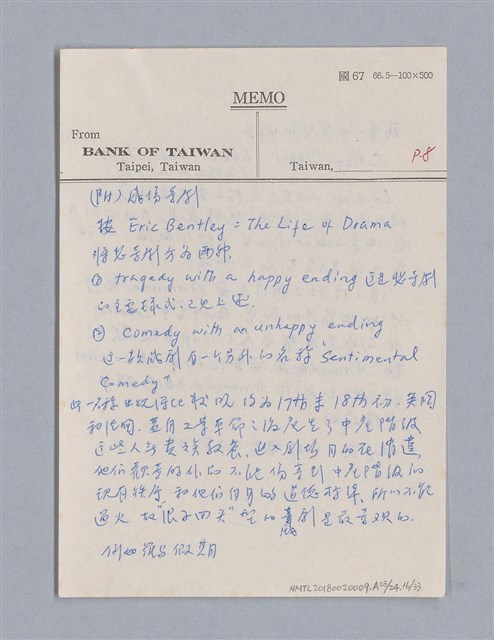 國 67 66.5—100×500
MEMO
From
BANK OF TAIWAN
Taipei, Taiwan
Taiwan,
P.8
(附) 感傷喜劇
按 Eric Bentley = The Life of Drama
將悲喜劇分為兩種.
① tragedy with a happy ending 這是悲喜劇
的主要樣式, 已見上述.
② comedy with an unhappy ending
這一款戲劇有一个另外的名称 "Sentimental
Comedy"
此一名称出現 約為17th末18th初. 英國
和法國. 蓋自工業革命之後產生了中產階級
這些人 貴族 進入劇場目的在消遣,
他們 觀喜的 不 傷害到中產階級的
現有秩序 和他們自身的道德 所以不能
過火 故 "浪子回头" 型的 劇是最喜欢的.
例如 假期
NMTL20180020009.A23/24.16/33